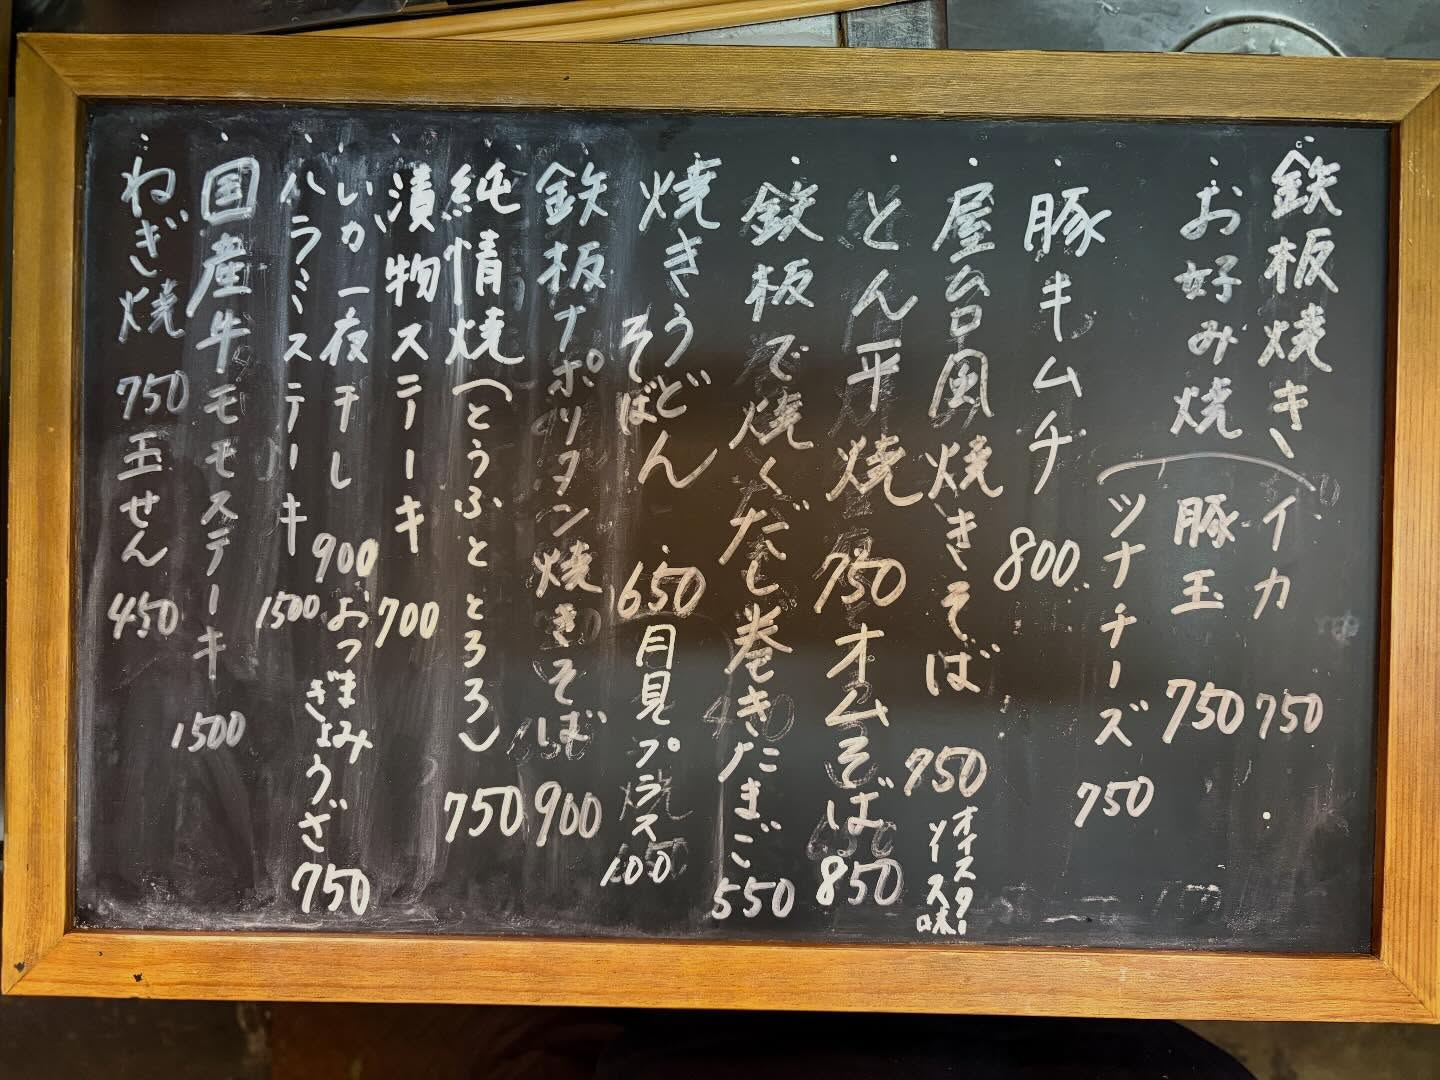 鉄板焼き
お好み焼
イカ 750
豚玉 750
ツナチーズ 750
豚キムチ 800
屋台風焼きそば 750
オイスターソース味
とん平焼 750
オムそば 850
鉄板で焼くだし巻きたまご 550
焼きうどん
そばめし 650
月見プラス 100
鉄板ナポリタン焼きそば 900
純情焼(とうふととろろ) 750
漬物ステーキ 700
いか一夜干し 900
おつまみぎょうざ 750
ハラミステーキ 1500
国産牛モモステーキ 1500
ねぎ焼 750
玉せん 450